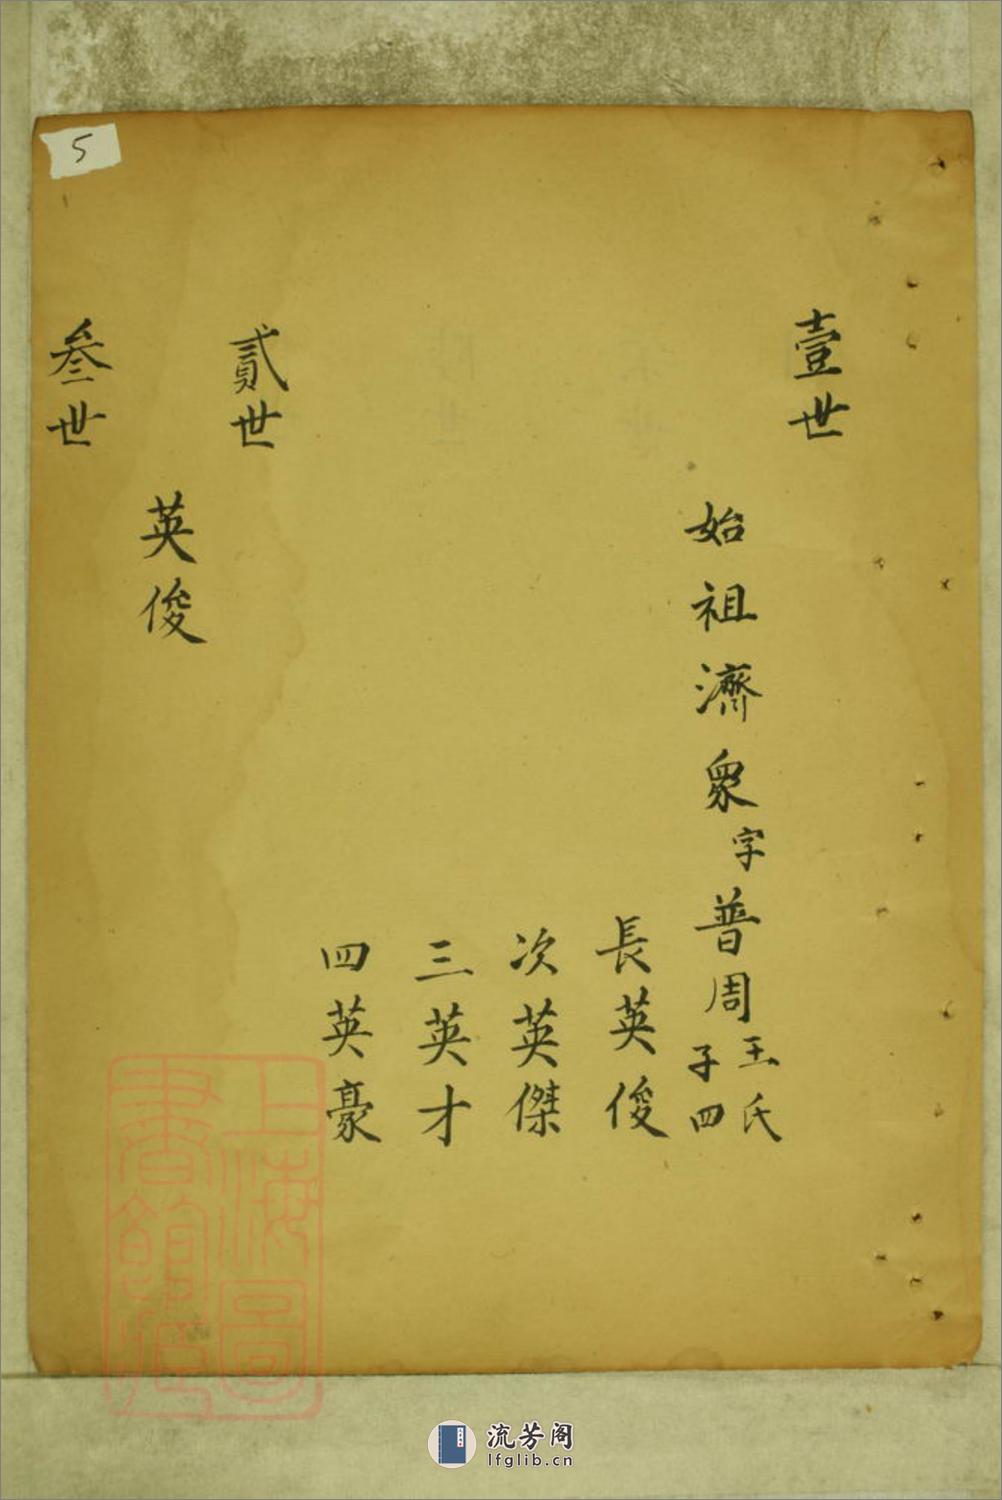 5
壹世
始祖濟衆字普周王氏子四
長英俊
次英傑
三英才
四英豪
貳世
英俊
叁世
上海圖
書館藏
流芳阁
lfglib.cn